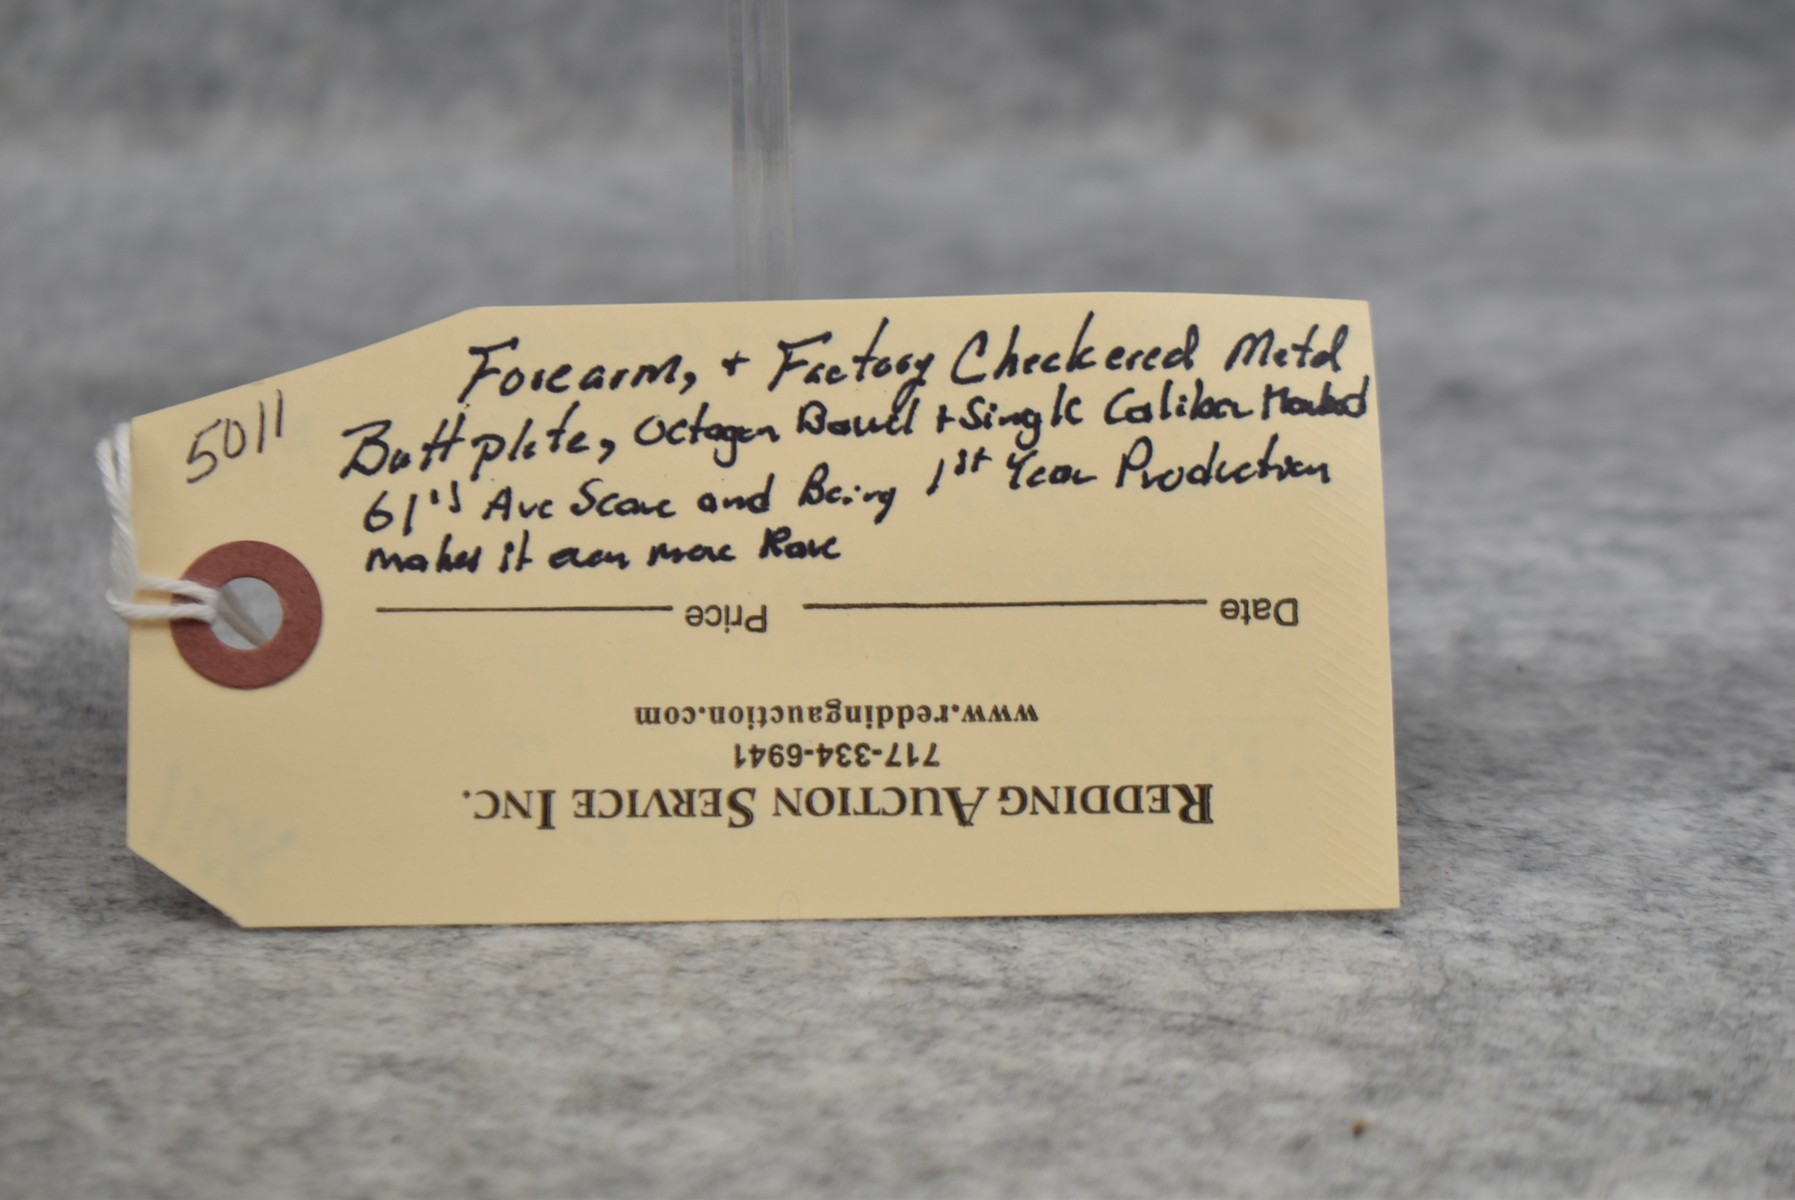 5011
Forearm, + Factory Checkered Metal
Buttplate, Octagon Barrel + Single Caliber Marked
61's Are Scarce and Being 1st Year Production
makes it even more Rare
Date Price
www.reddingauction.com
717-334-6941
REDDING AUCTION SERVICE INC.